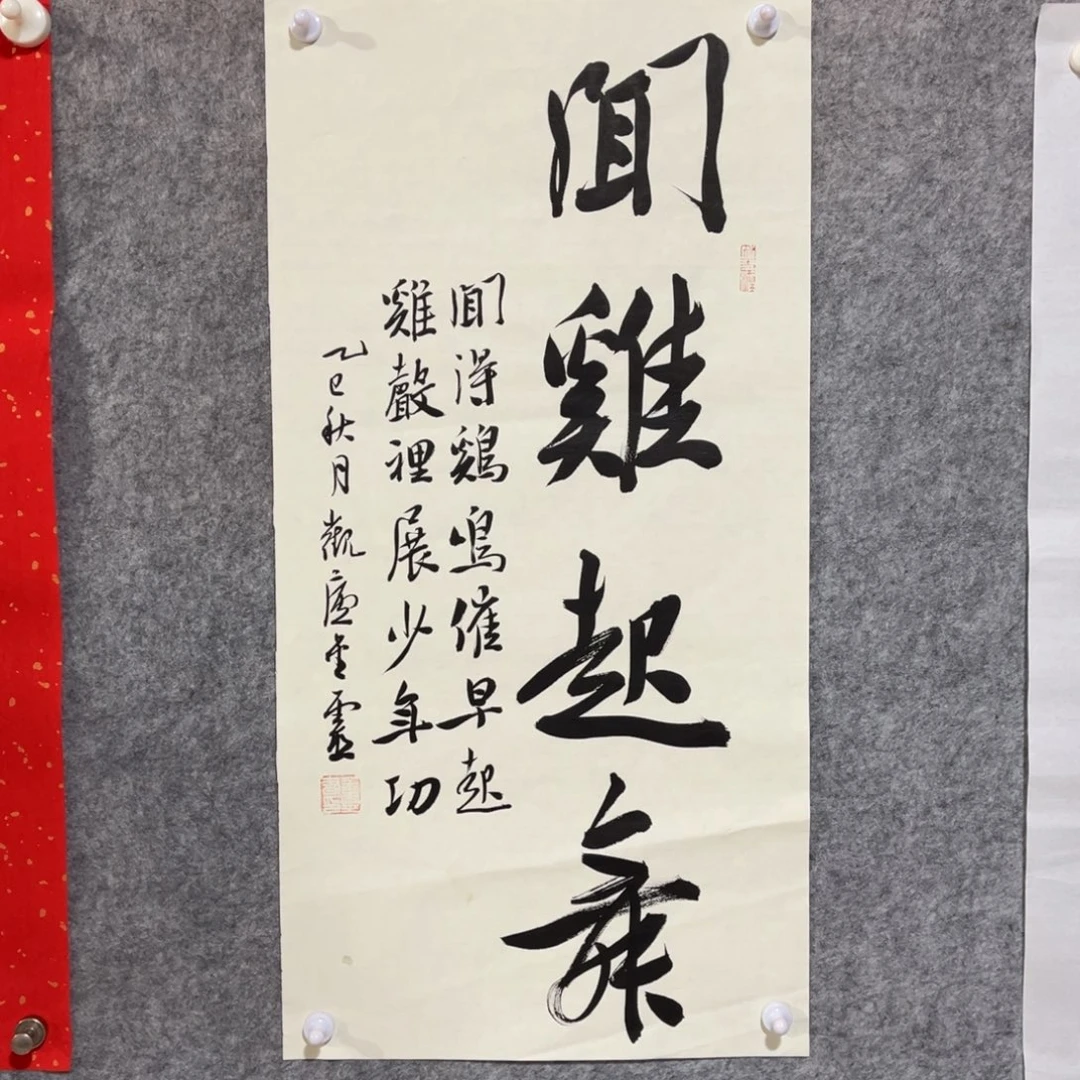 聞雞起舞
聞得鷄鳴催早起
雞聲裡展少年功
乙巳秋月觀廬書靈